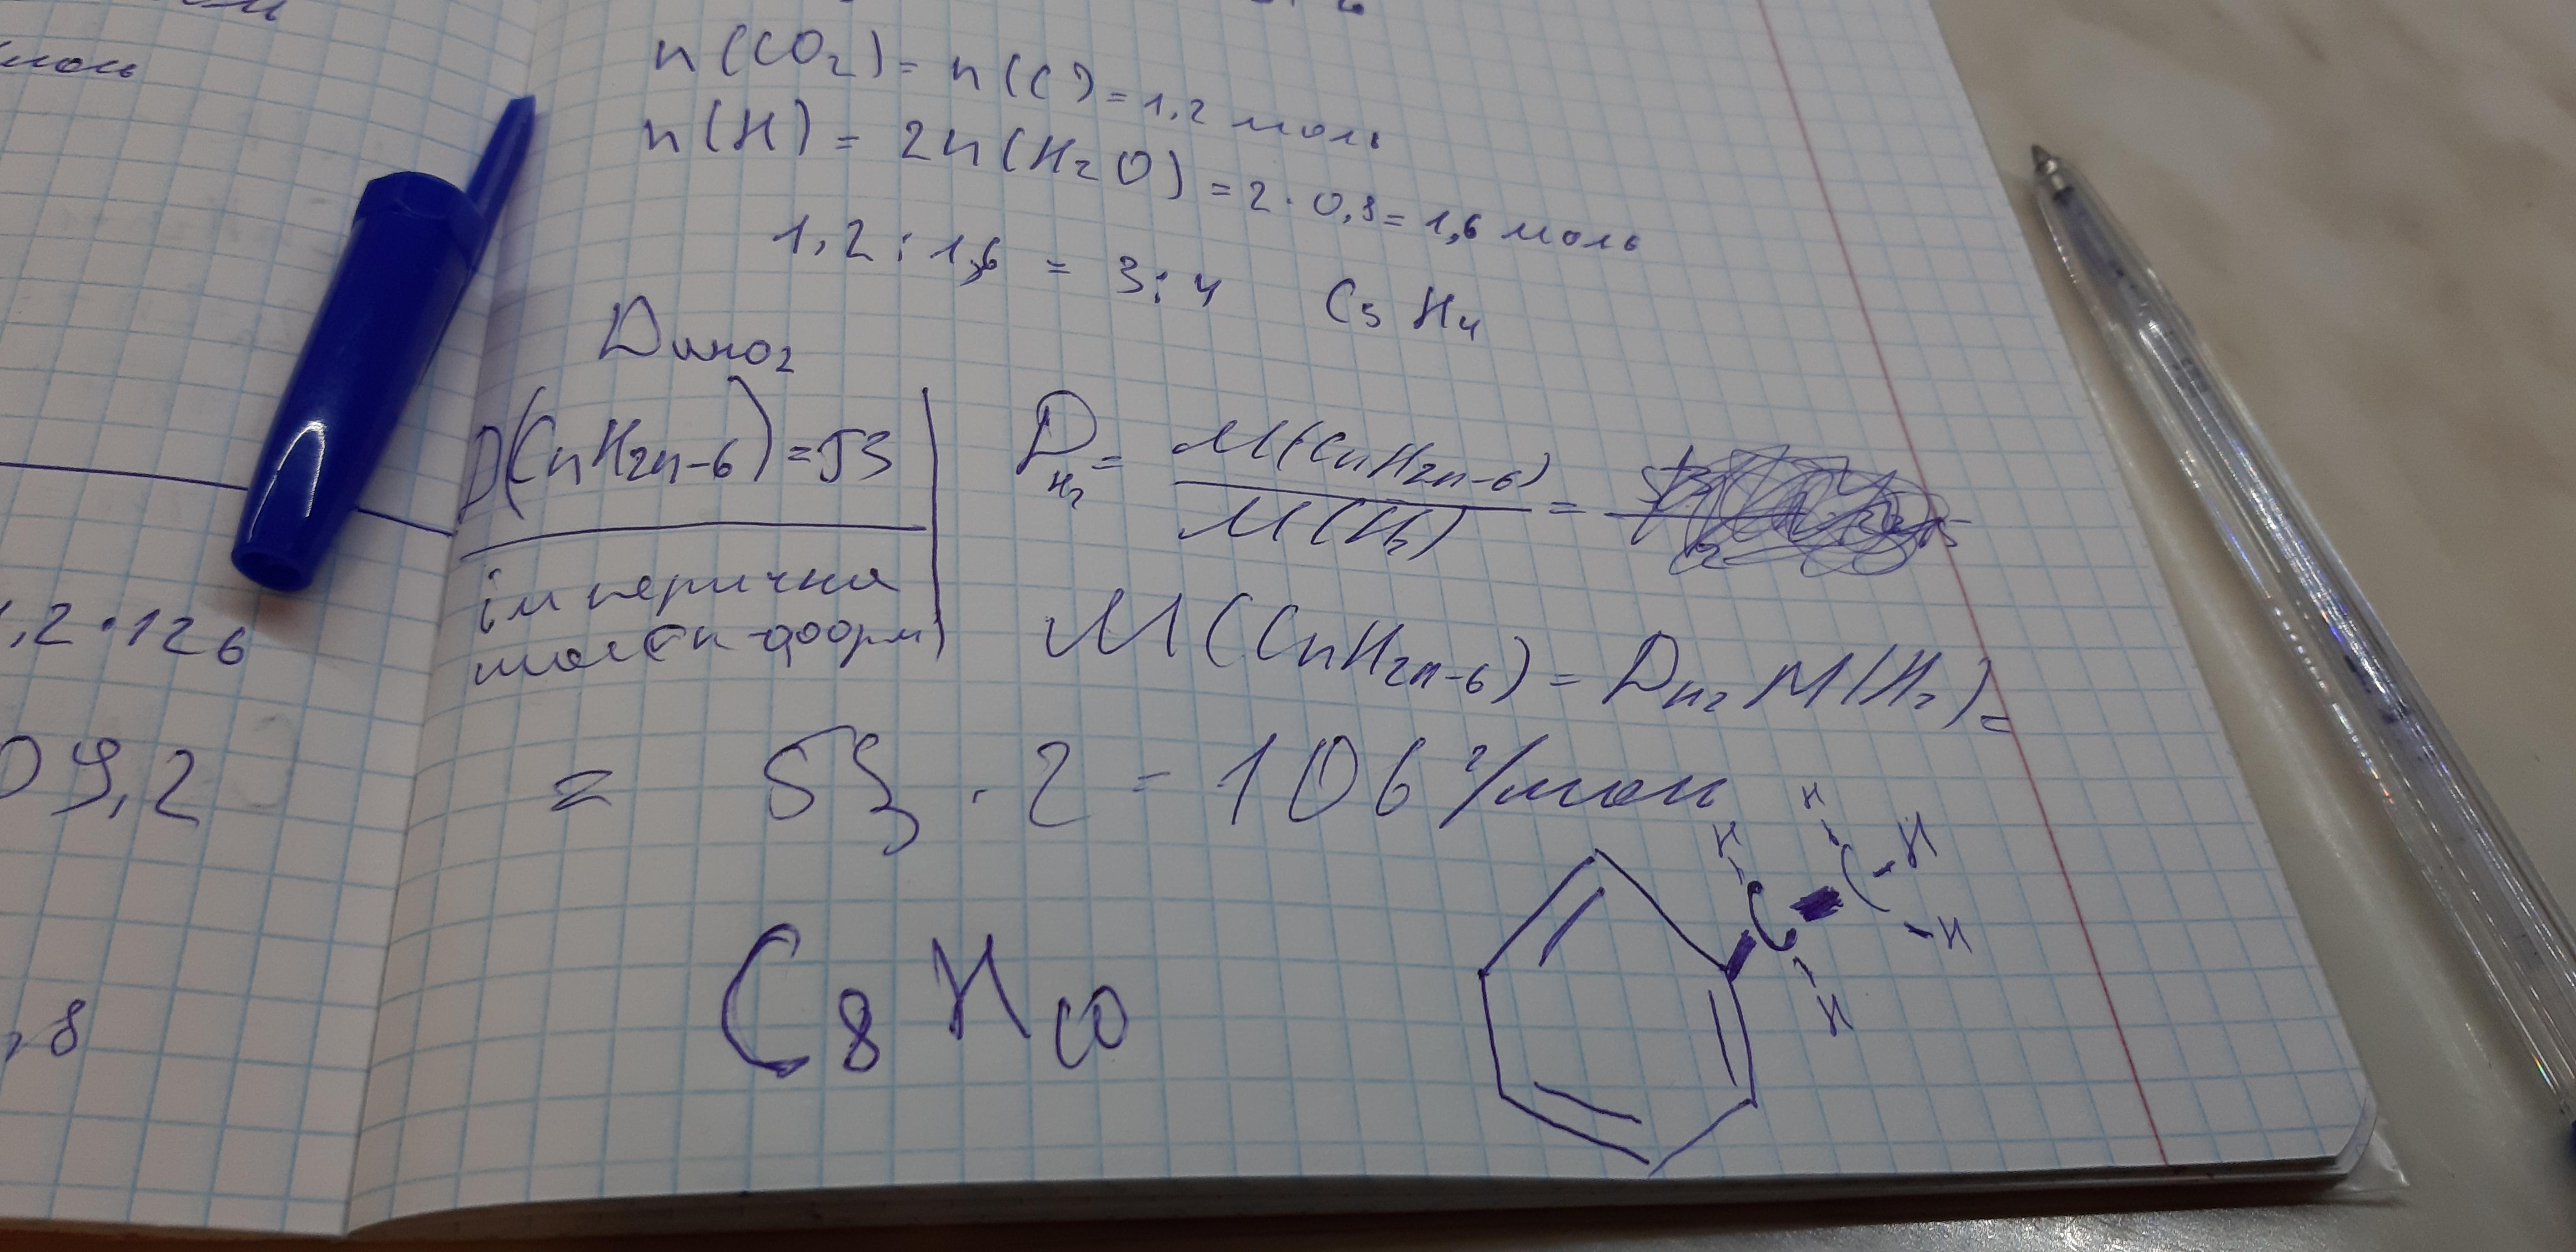 моль
n(CO₂) = n(C) = 1,2 моль
n(H) = 2n(H₂O) = 2 · 0,8 = 1,6 моль
1,2 : 1,6 = 3:4 C₃H₄
Дано2
D(CnH2n-6) = 53
імперична
D H₂ = M(CnH2n-6) / M(H₂) =
M(CnH2n-6) = D H₂ M(H₂) =
= 53 · 2 = 106 г/моль
C₈H₁₀
H
H
C
C
H
H
H
,2·126
09,2
,8